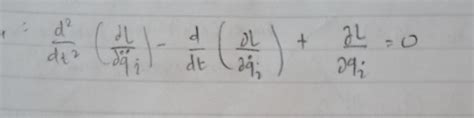 ∴ d²/dt² (∂L/∂q̈ⱼ) − d/dt (∂L/∂q̇ⱼ) + ∂L/∂qⱼ = 0